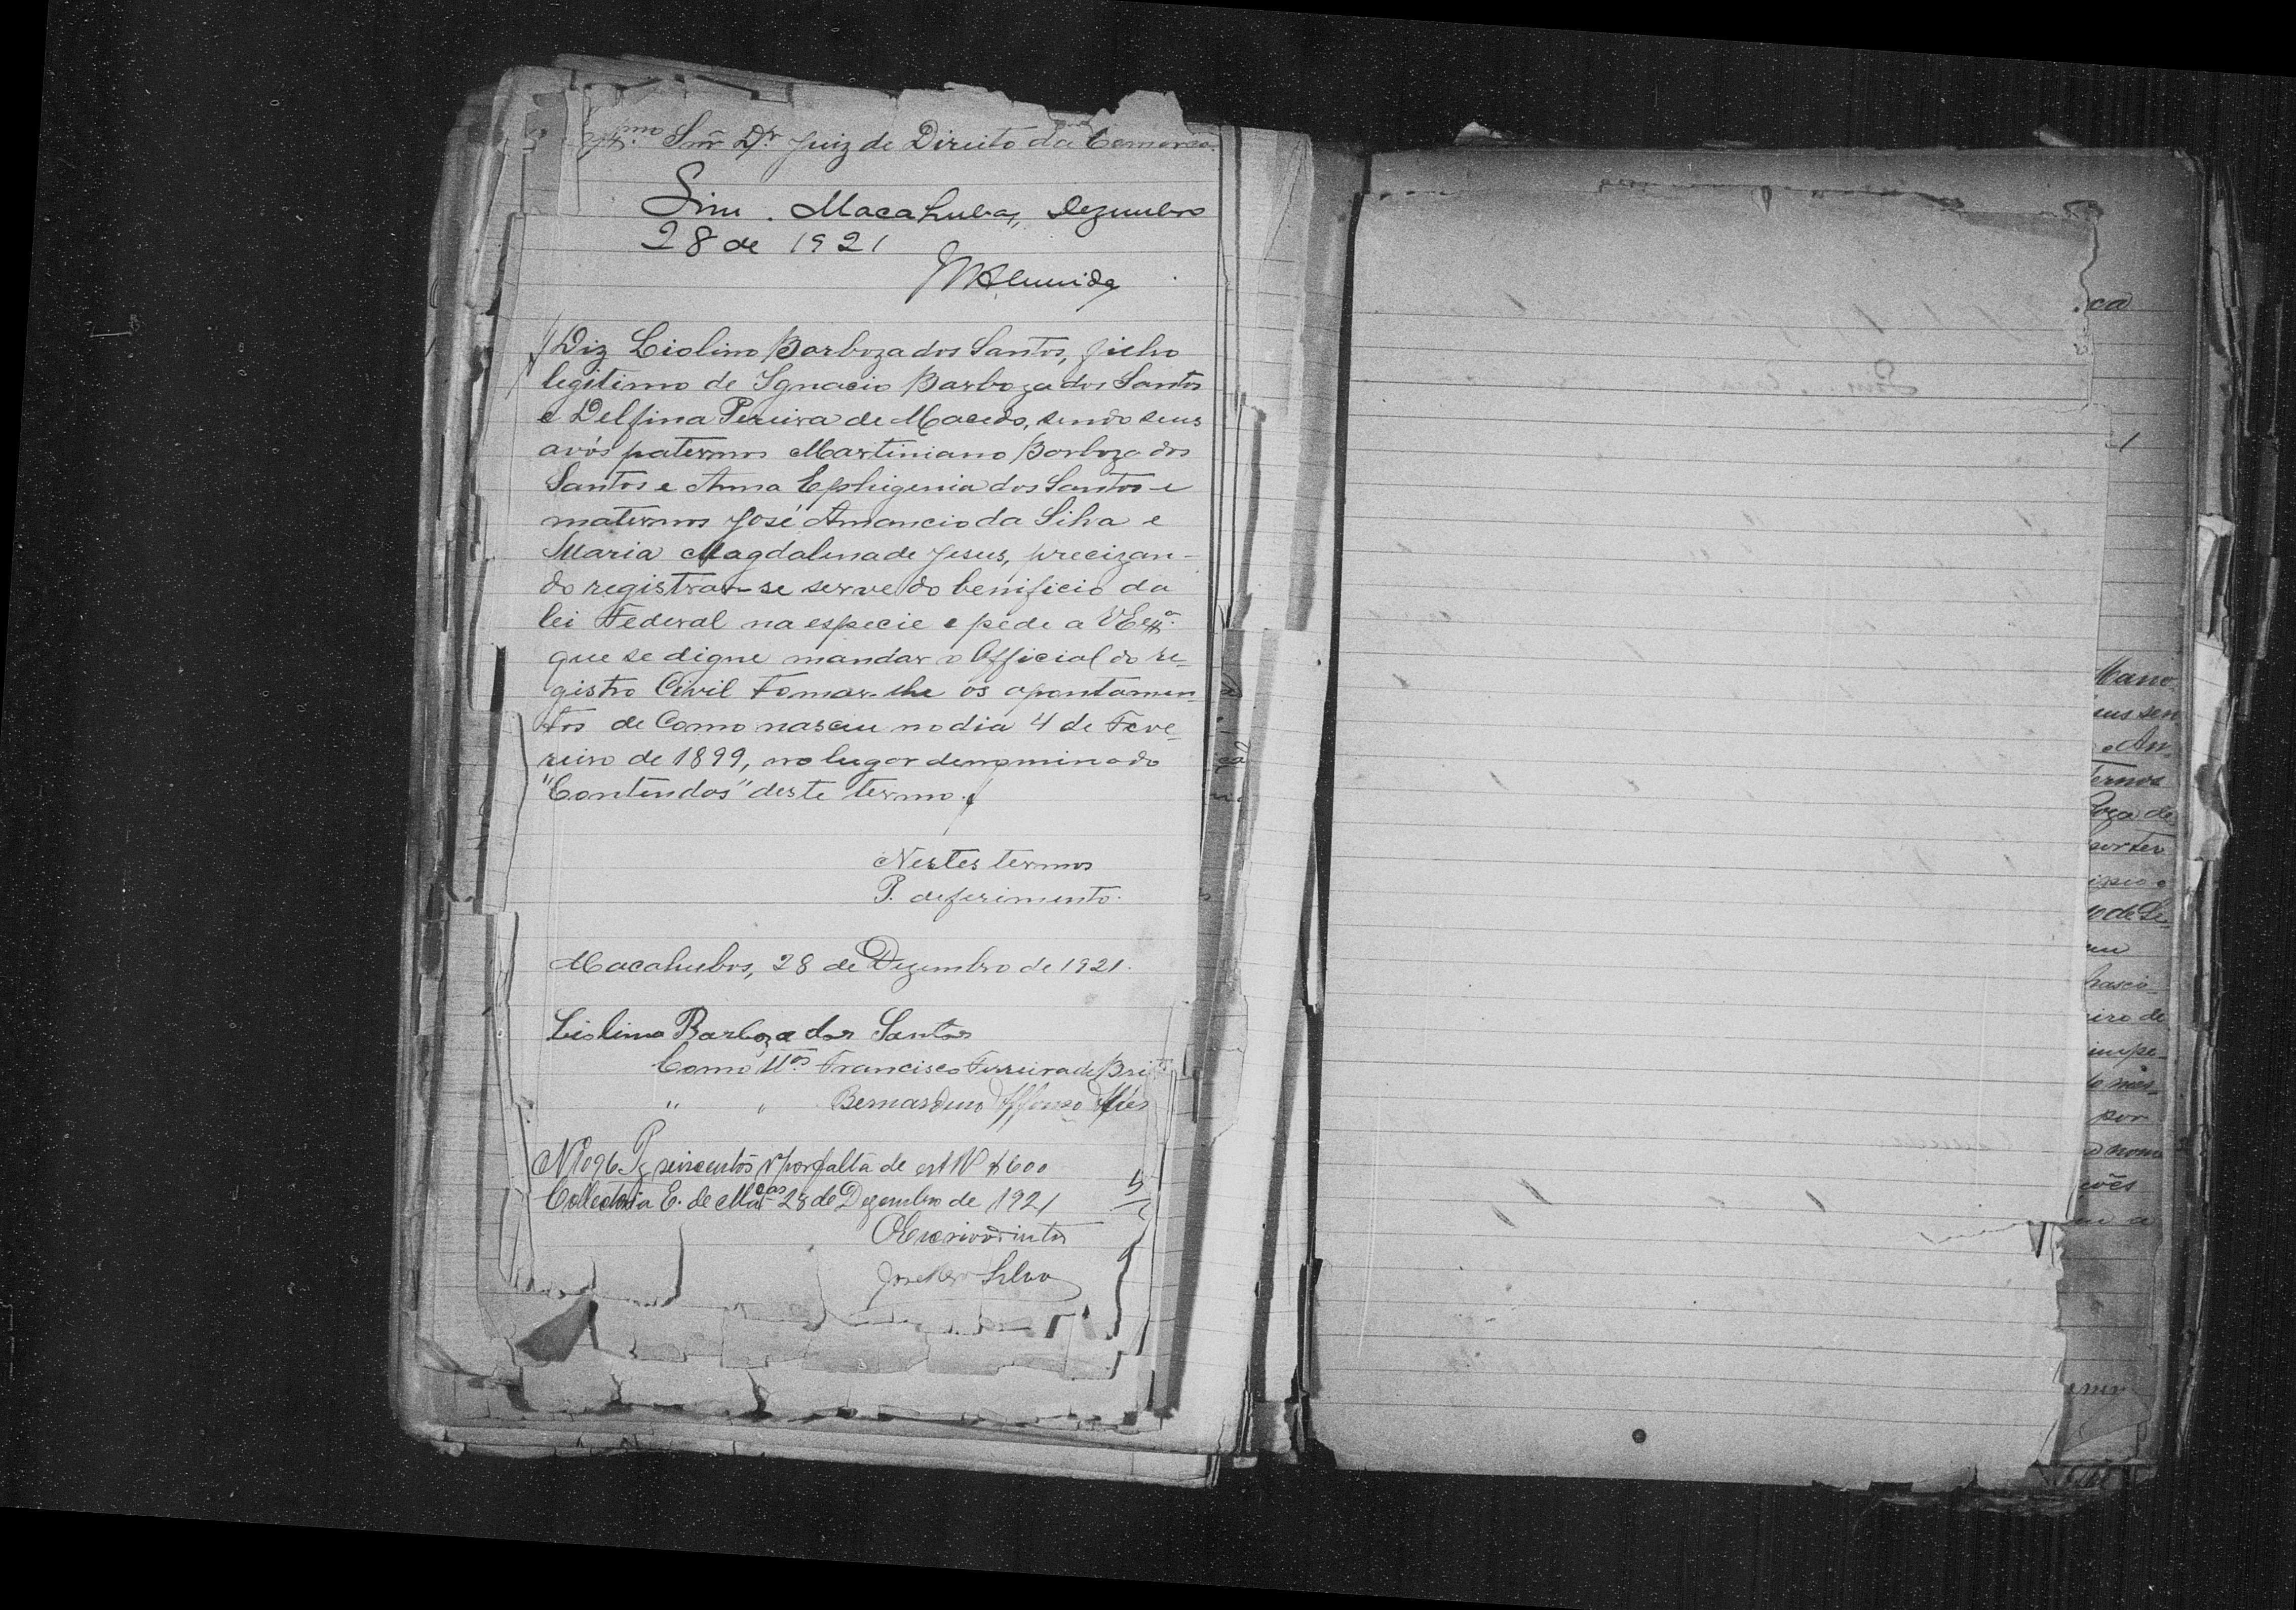 Exmo. Snr. Dr. Juiz de Direito da Comarca.
Sim. Macahubas, Dezembro
28 de 1921
MAlmeida
Diz Liolino Barboza dos Santos, filho
legitimo de Ignacio Barboza dos Santos
e Delfina Pereira de Macedo, sendo seus
avós paternos Martiniano Barboza dos
Santos e Anna Ephigenia dos Santos e
maternos José Amancio da Silva e
Maria Magdalena de Jesus, precizan-
do registrar-se serve do benificio da
lei Federal na especie e pede a VExa.
que se digne mandar o Official do re-
gistro Civil tomar-lhe os apontamen-
tos de como nasceu no dia 4 de Feve-
reiro de 1899, no lugar denominado
"Contendas" deste termo.
Nestes termos
P. deferimento.
Macahubas, 28 de Dezembro de 1921.
Liolino Barboza dos Santos
Como ttas Francisco Ferreira de Brito
" " Bernardino Affonso
N 1096 Pg seiscentos rs por falta de est $600
Collectoria E. de Macas 28 de Dezembro de 1921
O Escrivão
Silva
ca
1
eus sen
e An-
ternos
por
nome